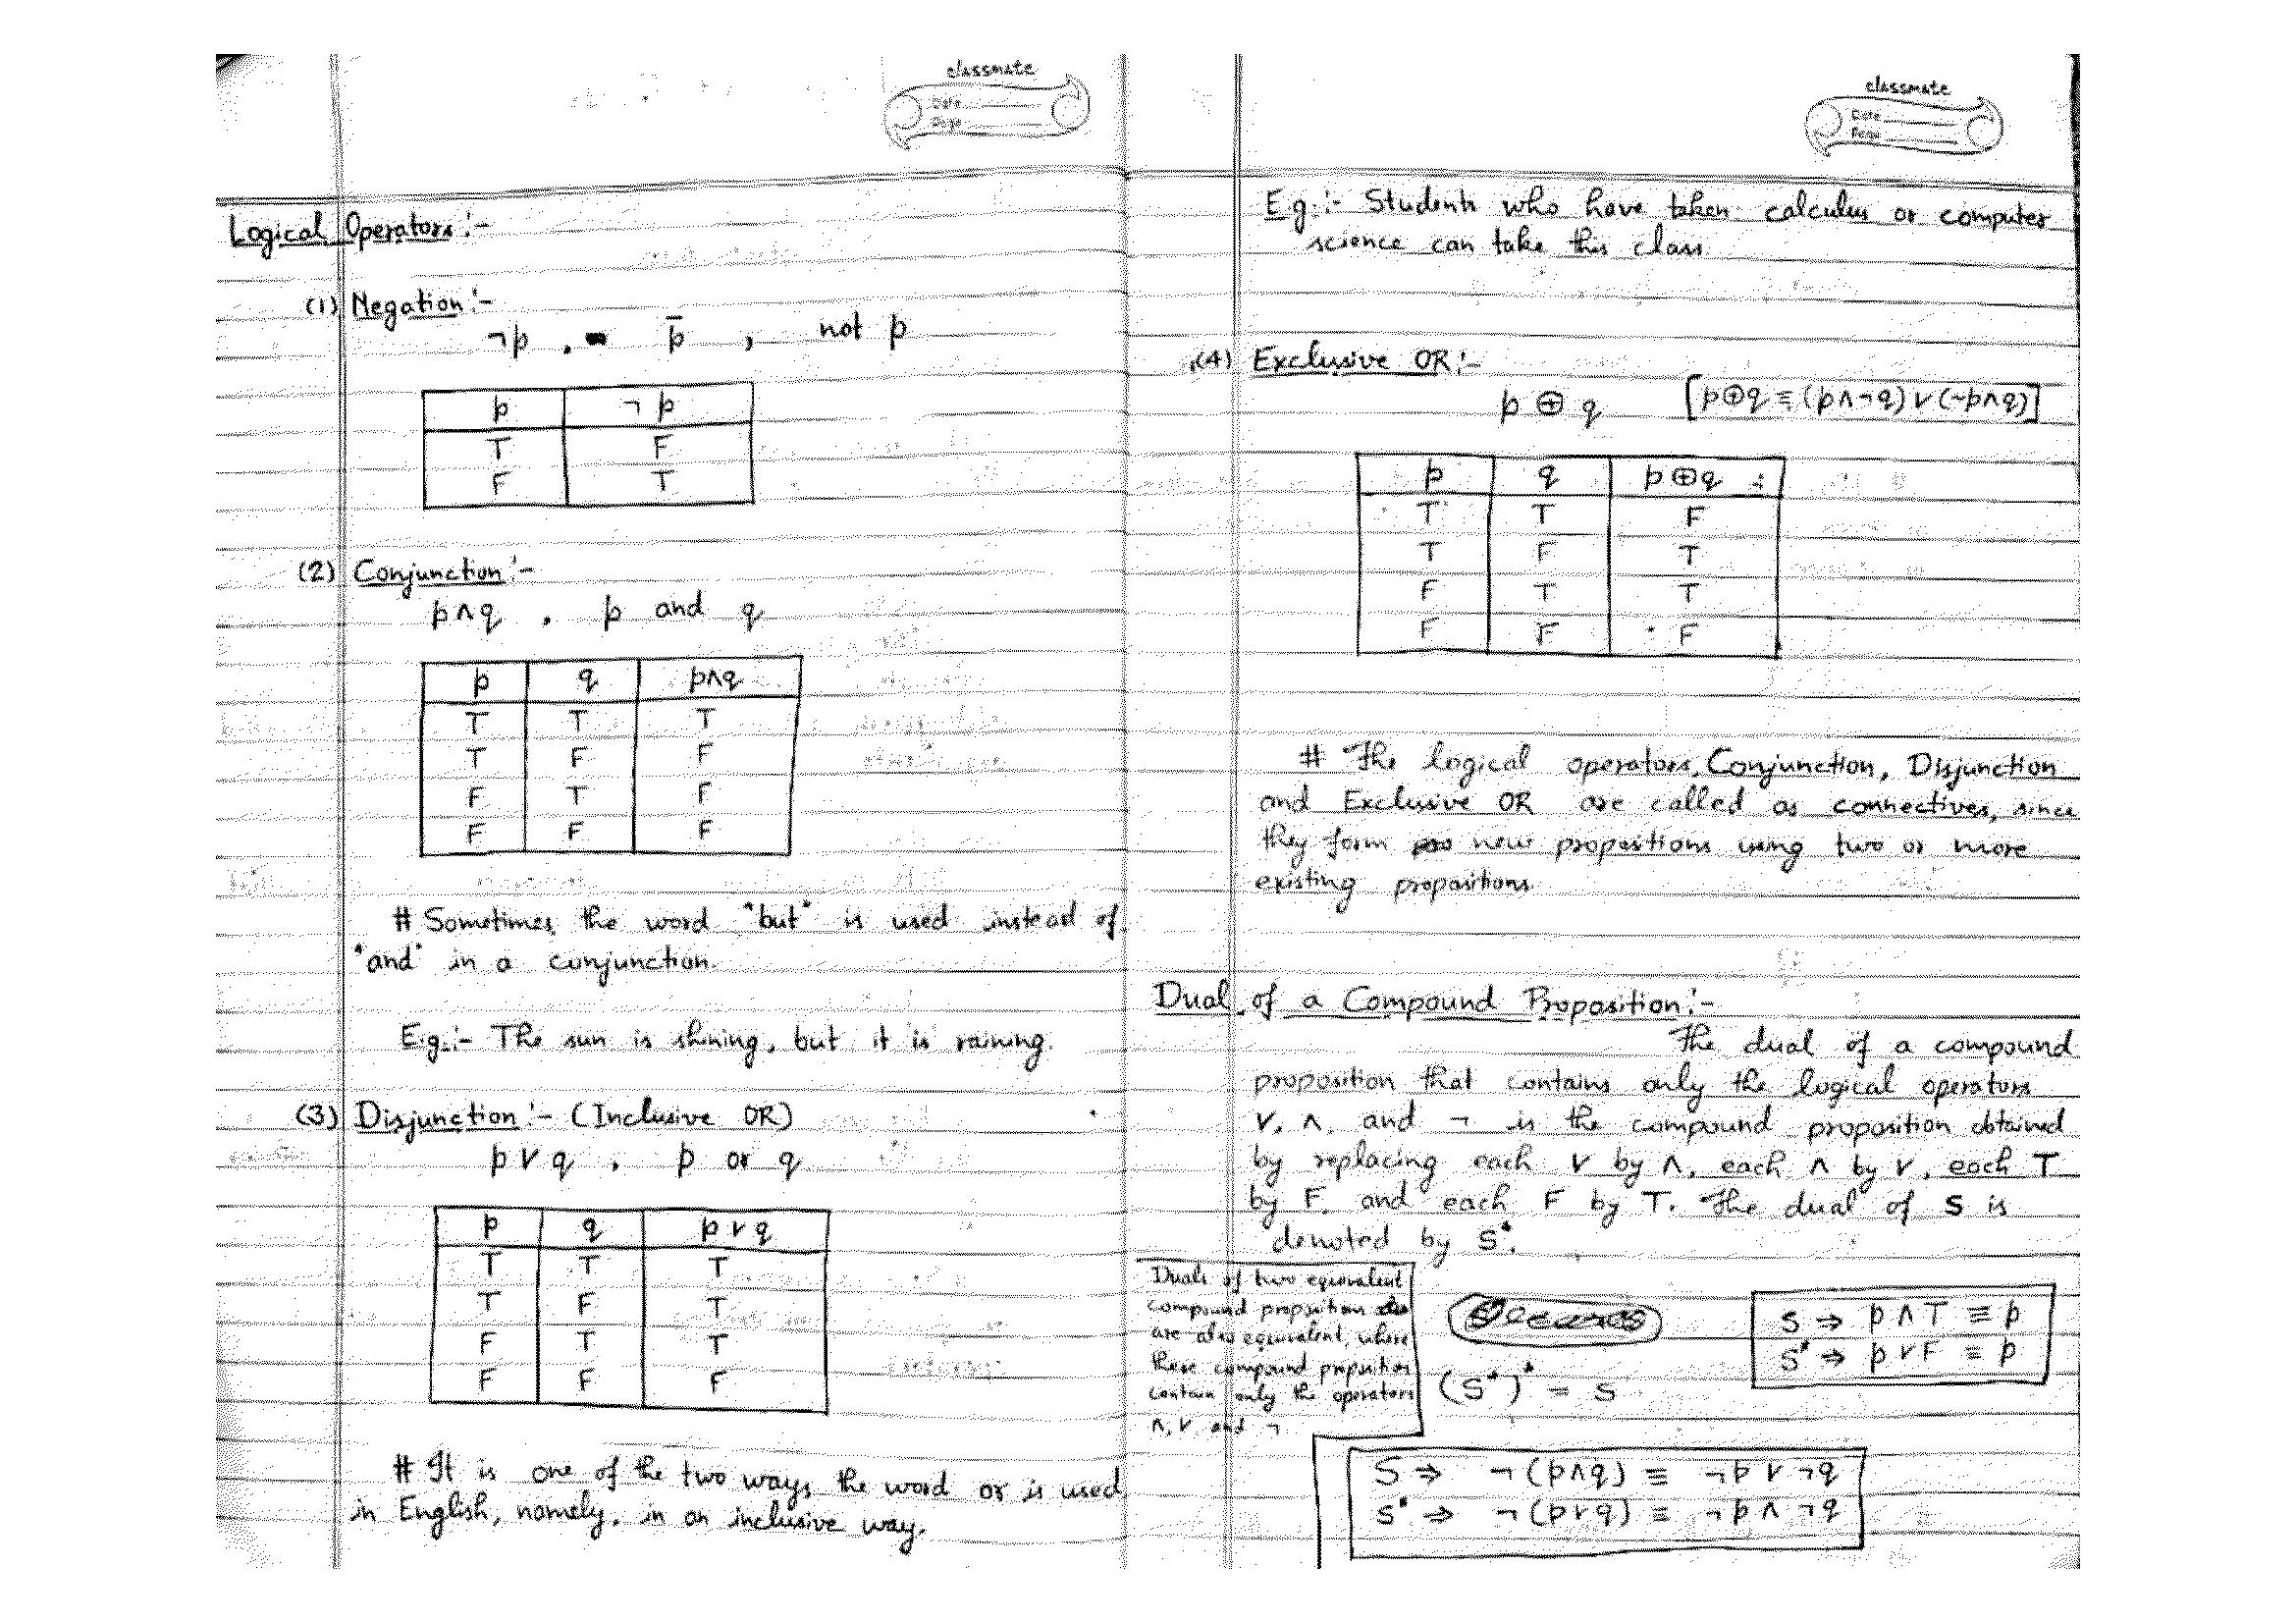 classmate
Date
Page
Logical Operators :-
(1) Negation :-
¬p , p̄ , not p
p ¬p
T F
F T
(2) Conjunction :-
p∧q , p and q
p q p∧q
T T T
T F F
F T F
F F F
# Sometimes the word "but" is used instead of
"and" in a conjunction.
E.g.:- The sun is shining, but it is raining.
(3) Disjunction :- (Inclusive OR)
p∨q , p or q
p q p∨q
T T T
T F T
F T T
F F F
# It is one of the two ways the word or is used
in English, namely, in an inclusive way.
classmate
Date
Page
E.g.:- Students who have taken calculus or computer
science can take this class.
(4) Exclusive OR :-
p ⊕ q [p⊕q ≡ (p∧¬q)∨(¬p∧q)]
p q p⊕q
T T F
T F T
F T T
F F F
# The logical operators, Conjunction, Disjunction
and Exclusive OR are called as connectives, since
they form new propositions using two or more
existing propositions.
Dual of a Compound Proposition :-
The dual of a compound
proposition that contains only the logical operators
∨, ∧, and ¬ is the compound proposition obtained
by replacing each ∨ by ∧, each ∧ by ∨, each T
by F, and each F by T. The dual of S is
denoted by S*.
Duals of two equivalent
compound proposition
are also equivalent, where
these compound proposition
contain only the operators
∧, ∨ and ¬
S ⇒ p ∧ T ≡ p
S* ⇒ p ∨ F ≡ p
(S*)* = S
S ⇒ ¬(p∧q) ≡ ¬p ∨ ¬q
S* ⇒ ¬(p∨q) ≡ ¬p ∧ ¬q